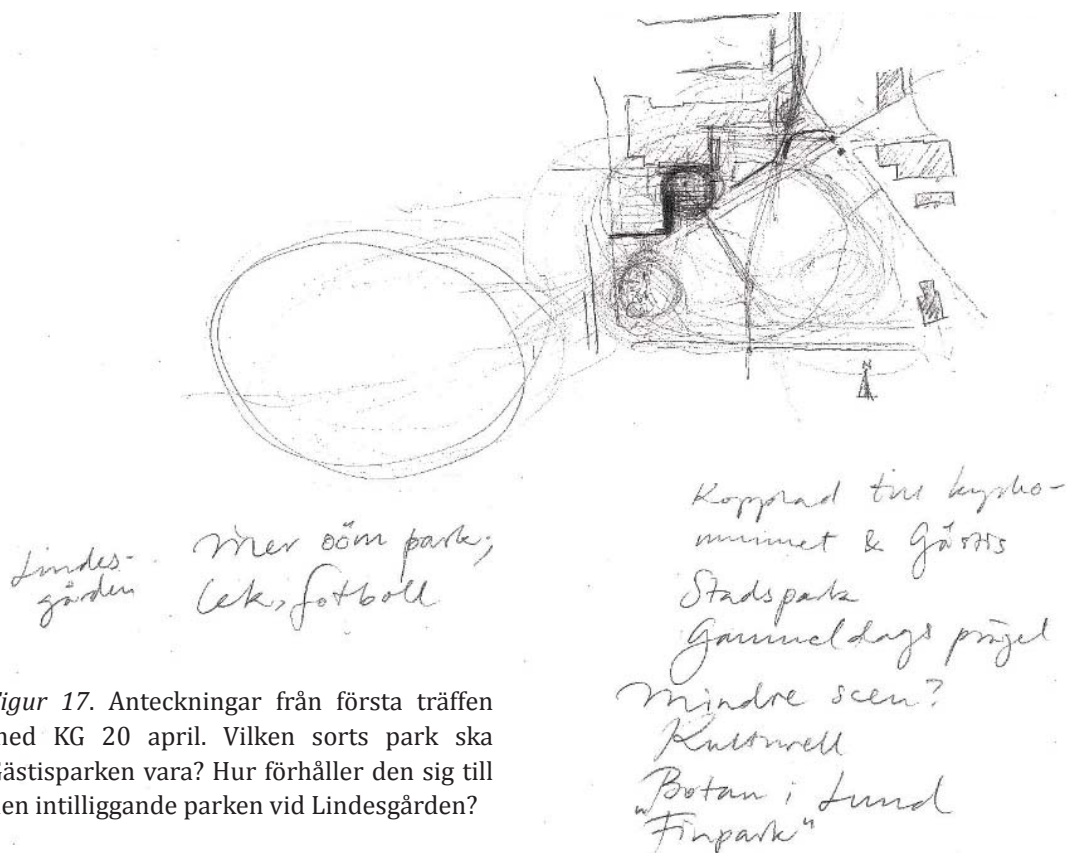 N
Lindes-
gården
Mer oöm park;
lek, fotboll
Kopplad till kyrko-
rummet & Gästis
Stadspark
Gammeldags prägel
Mindre scen?
Kulturell
Botan i Lund
"Finpark"
Figur 17. Anteckningar från första träffen
med KG 20 april. Vilken sorts park ska
Gästisparken vara? Hur förhåller den sig till
den intilliggande parken vid Lindesgården?